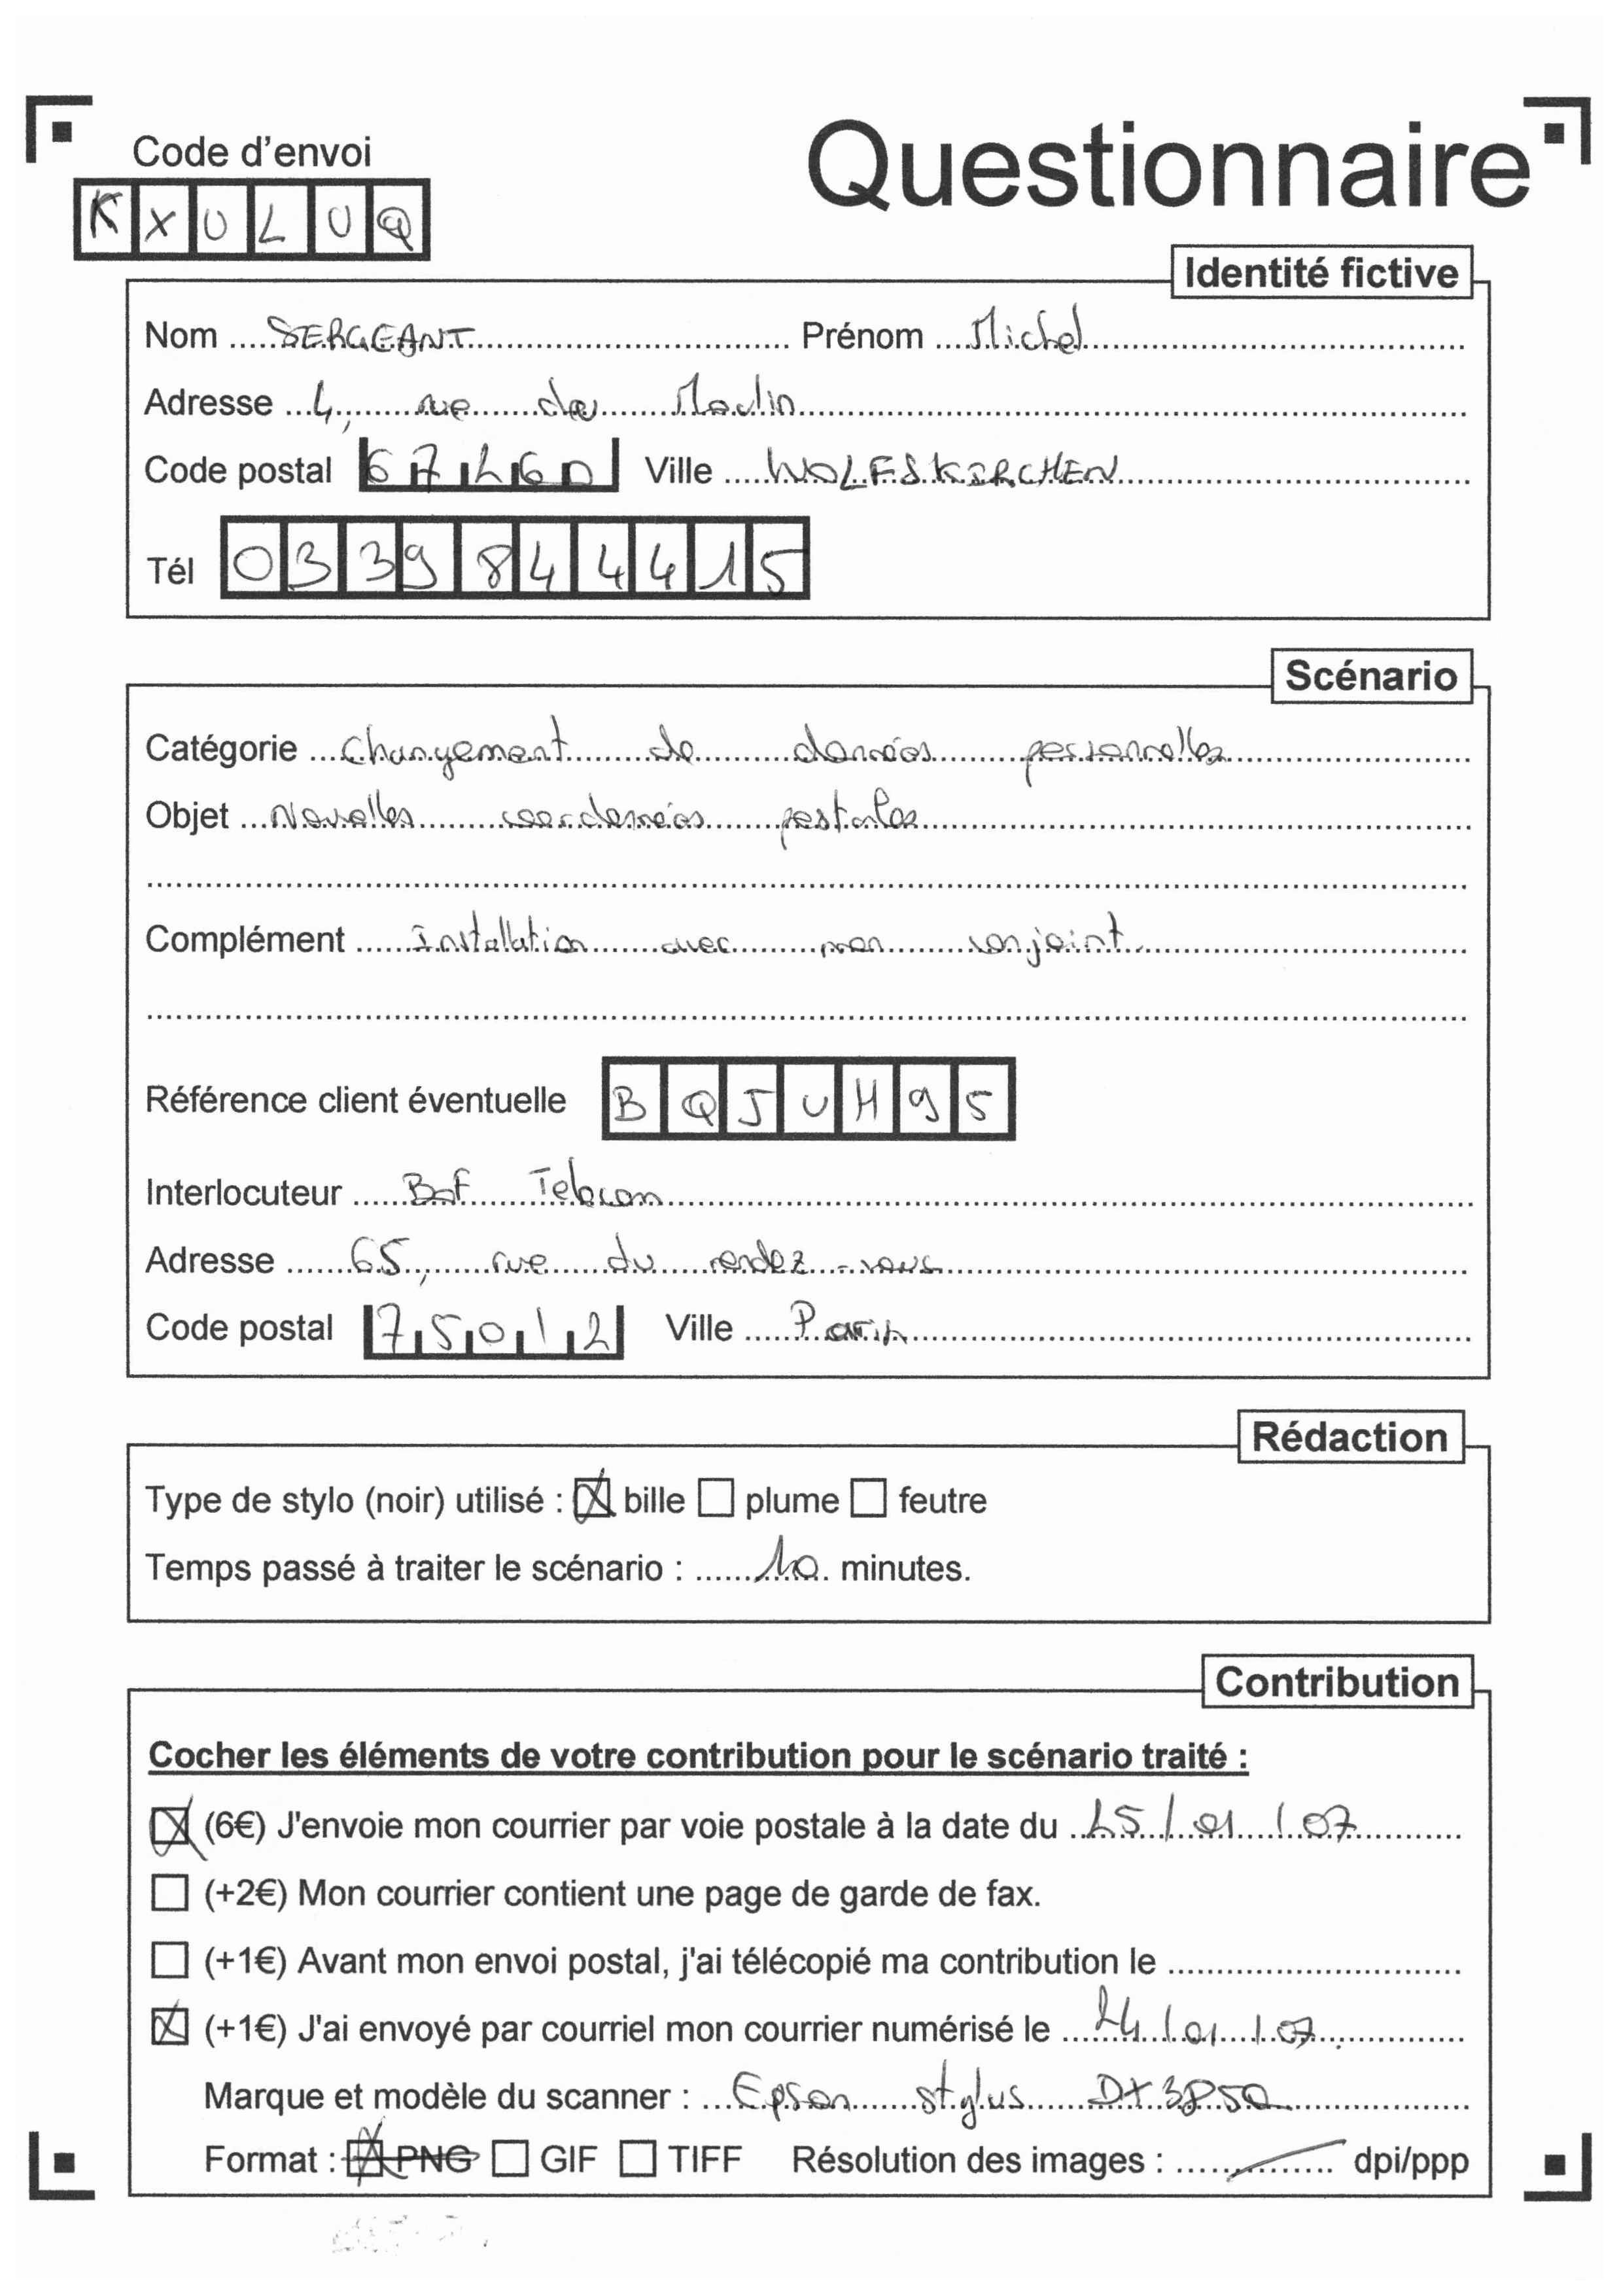 Code d'envoi
Questionnaire
K X U L U Q
Identité fictive
Nom SERGEANT Prénom Michel
Adresse 4, rue du Moulin
Code postal 67260 Ville WOLFSKIRCHEN
Tél 0339844415
Scénario
Catégorie Changement de données personnelles
Objet Nouvelles coordonnées postales
Complément Installation avec mon conjoint.
Référence client éventuelle BQJUH95
Interlocuteur Telecom
Adresse 65, rue du rendez-vous
Code postal 75012 Ville Paris
Rédaction
Type de stylo (noir) utilisé : ☒ bille ☐ plume ☐ feutre
Temps passé à traiter le scénario : 10 minutes.
Contribution
Cocher les éléments de votre contribution pour le scénario traité :
☒ (6€) J'envoie mon courrier par voie postale à la date du 25/01/07
☐ (+2€) Mon courrier contient une page de garde de fax.
☐ (+1€) Avant mon envoi postal, j'ai télécopié ma contribution le
☒ (+1€) J'ai envoyé par courriel mon courrier numérisé le 24/01/07
Marque et modèle du scanner : Epson stylus DX3850
Format : ☒ PNG ☐ GIF ☐ TIFF Résolution des images : dpi/ppp